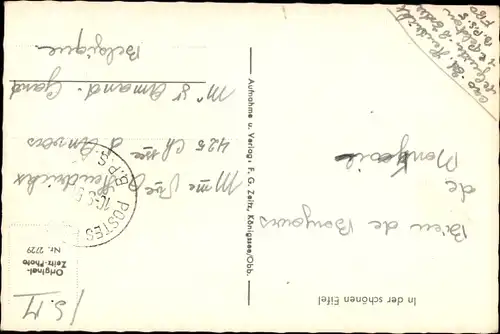 In der schönen Eifel
Bien de Bonjours
de Montjoie
Aufnahme u. Verlag: F. G. Zeitz, Königssee/Obb.
Original-
Zeitz-Photo
Nr. 2729
S.M
POSTES
B.P.S.
Mme Vve Hendrickx
425 Ch sée d'Anvers
Mt St Amand-Gand
Belgique
B.P.S.5